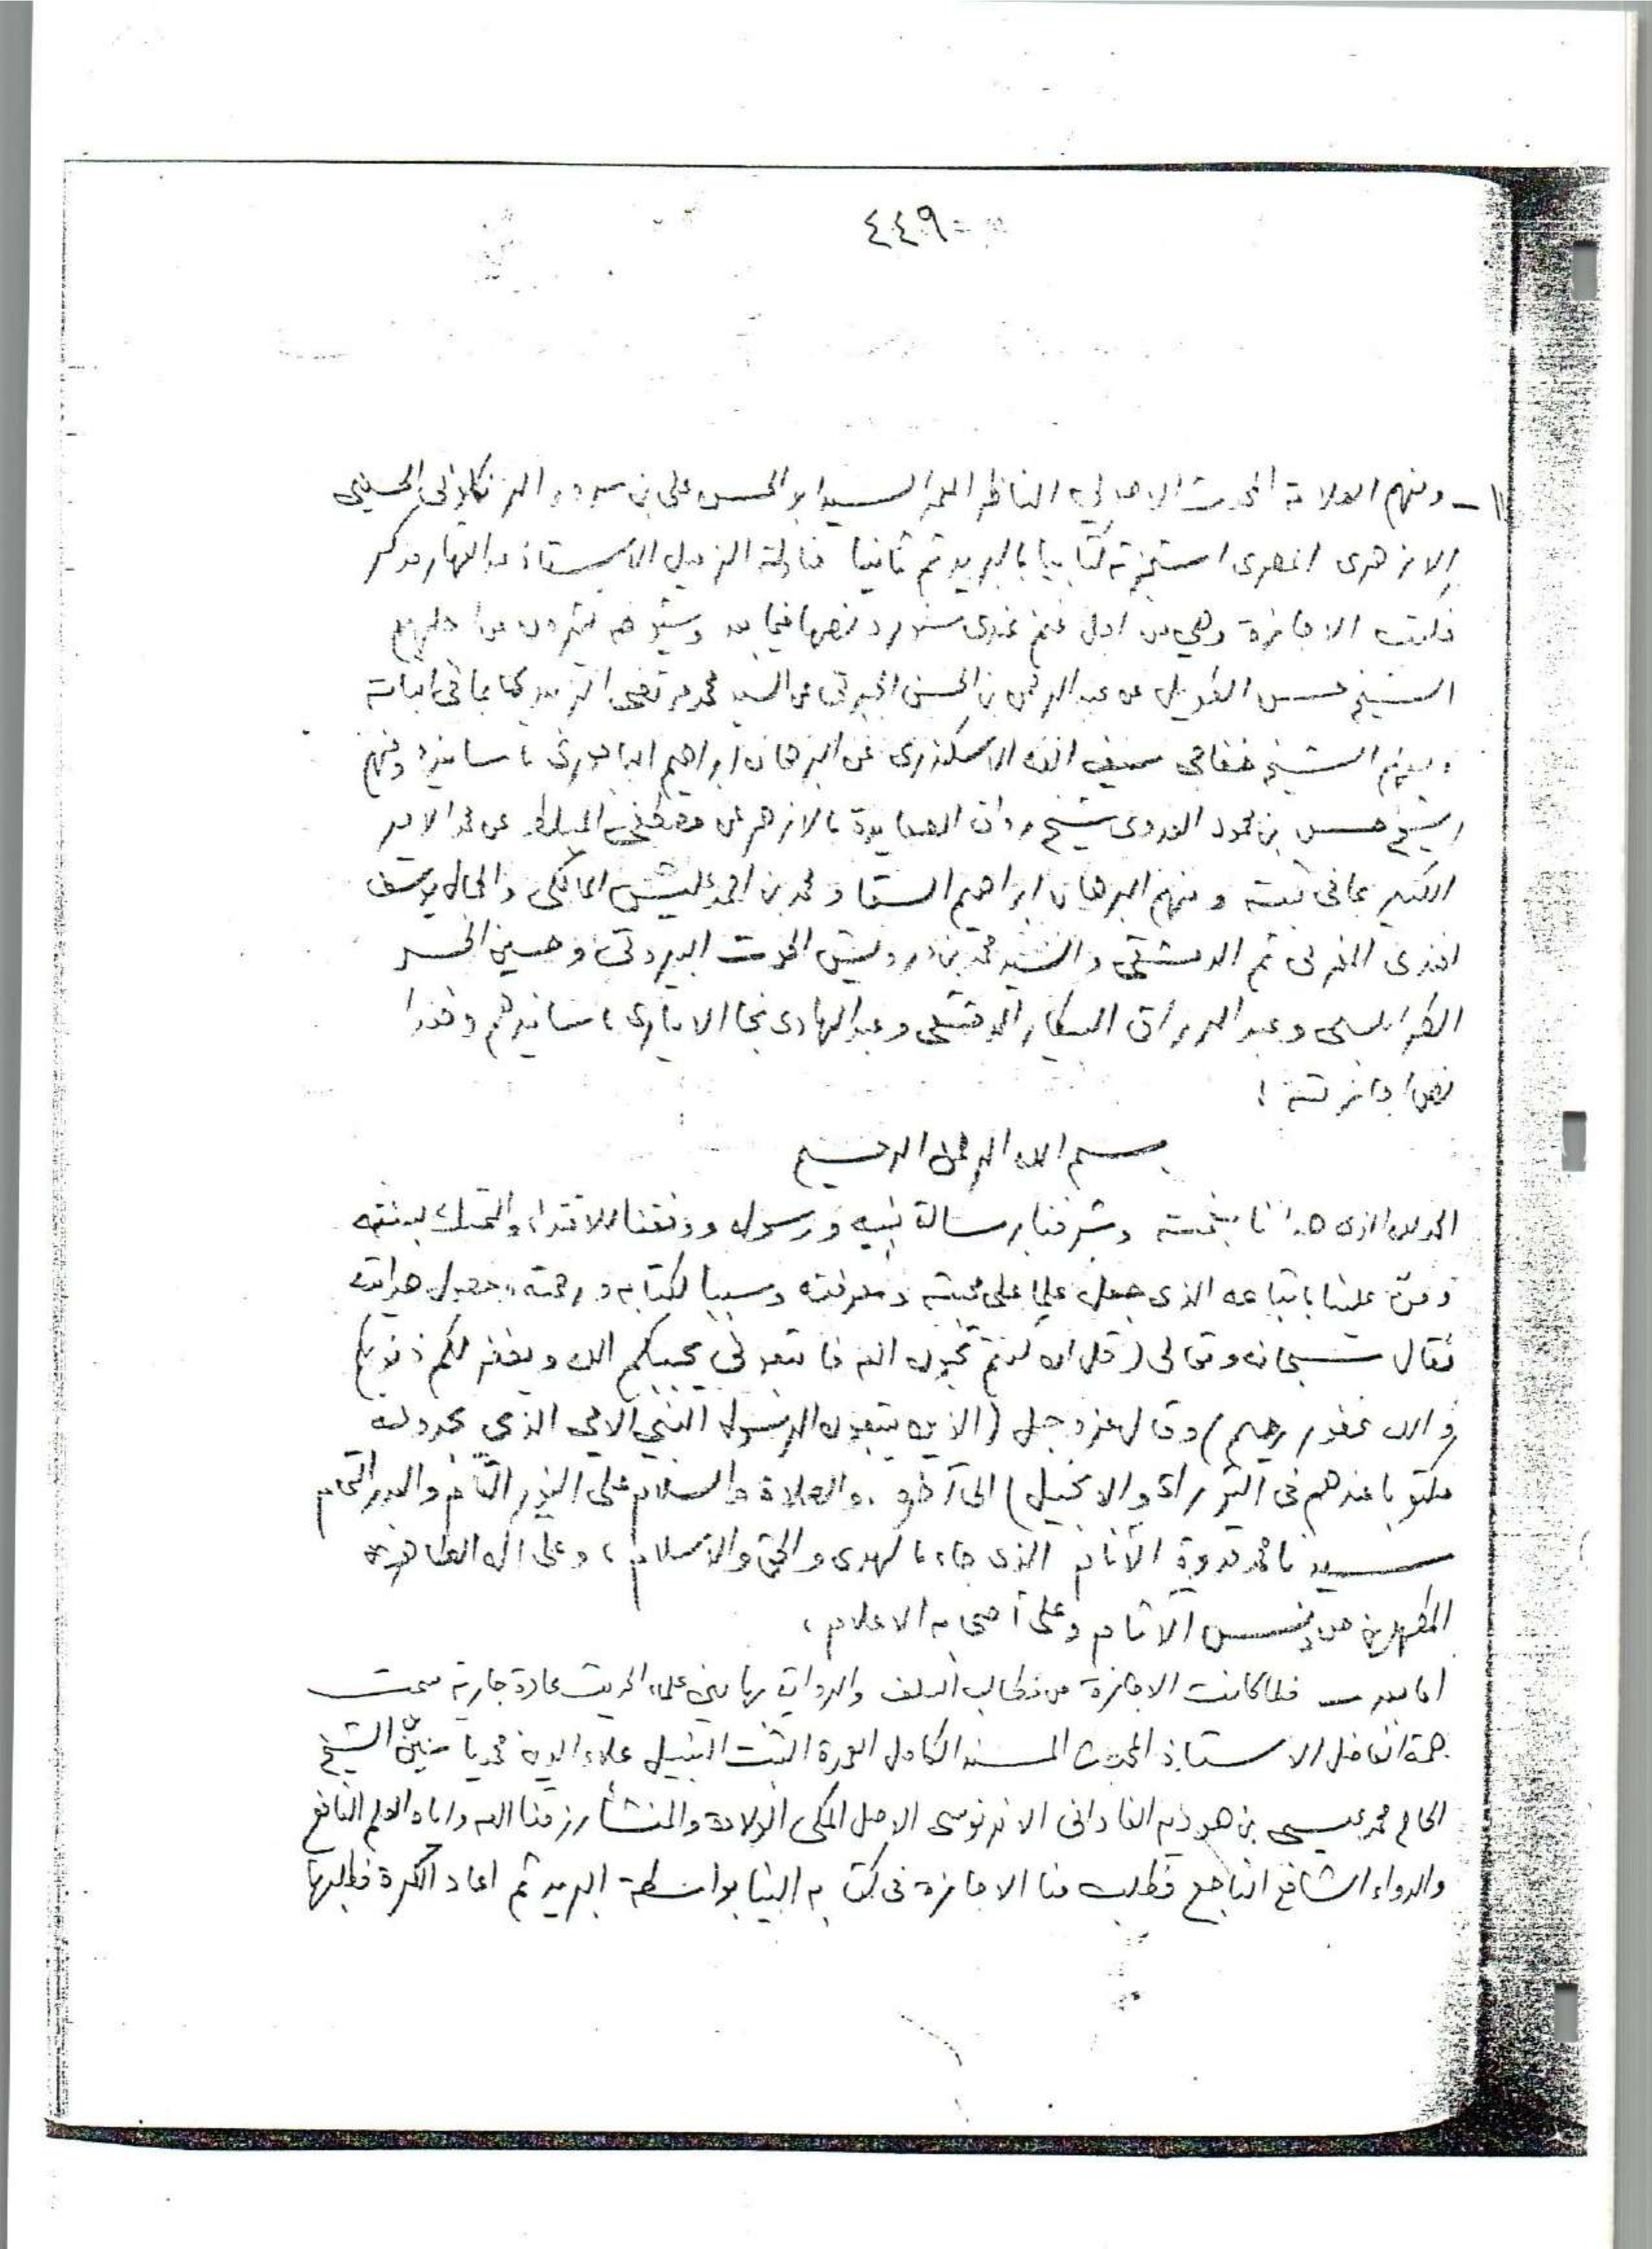 ٤٤٩
١١ - ومنهم العلامة المحدث الاصولي الناظر المعمر السيد ابو الحسن علي بن سرور الزنكلوني الحسيني
الازهرى المصرى استجزته كتابيا بالبريد ثم ثانيا مناولة الزميل الاستاذ عبد القهار مذكر
فكتب الاجازة وهي من اجل غنم عندى سنورد نصها فيما بعد وشيوخه كثيرون جدا
الشيخ حسن الطويل عن عبد الرحمن بن الحسن الجبرتى عن السيد محمد مرتضى الزبيدى بما فى اثباته
ومنهم الشيخ خفاجى ضيف الله الاسكندرى عن البرهان ابراهيم الباجورى باسانيده ومنهم
الشيخ حسن بن محمود العدوى شيخ رواق الصعايدة بالازهر عن مصطفى المبلط عن محمد الامير
الكبير بما فى ثبته ومنهم البرهان ابراهيم السقا ومحمد بن احمد عليش المالكى والجمال يوسف
المغربى ثم الدمشقى والسيد محمد بن درويش الحوت البيروتى وحسين الجسر
الطرابلسى وعبد الرزاق البيطار الدمشقى وعبد الهادى نجا الابيارى باسانيدهم وهذا
نص اجازته :
بسم الله الرحمن الرحيم
الحمد لله الذى هدانا بنعمته وشرفنا برسالة نبيه ورسوله ووفقنا للاقتداء والتمسك بسنته
ومنّ علينا باتباعه الذى جعل علما على محبته ومعرفته وسببا لكتابه ورحمته وجميل هدايته
فقال سبحانه وتعالى (قل ان كنتم تحبون الله فاتبعونى يحببكم الله ويغفر لكم ذنوبكم
والله غفور رحيم) وقال عز وجل (الذين يتبعون الرسول النبي الامي الذى يجدونه
مكتوبا عندهم فى التوراة والانجيل) الى آخره ، والصلاة والسلام على النور التام والبدر التمام
سيدنا محمد قدوة الأنام الذى جاء بالهدى والحق والاسلام ، وعلى اله الطاهرين
المطهرين من دنس الآثام وعلى أصحابه الاعلام ،
اما بعد فلما كانت الاجازة من مطالب السلف والرواية بها بين علماء الحديث عادة جارية سمت
همة الفاضل الاستاذ المحدث المسند الكامل العمدة الثبت النبيل علاء الدين محمد ياسين بن الشيخ
الحاج محمد عيسى بن هوديه الفادانى الاندنوسى الاصل المكى الولادة والمنشأ رزقنا الله واياه العلم النافع
والدواء الشافع الناجع فطلب منا الاجازة فى كتابه الينا بواسطة البريد ثم اعاد الكرة فطلبها